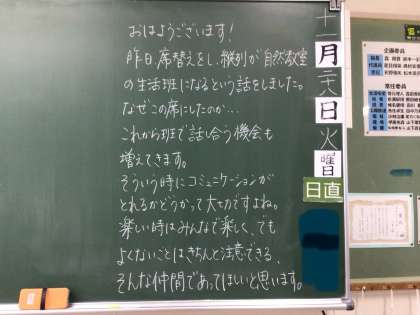 おはようございます！
昨日、席替えをし、縦列が自然教室
の生活班になるという話をしました。
なぜこの席にしたのか…
これから班で話し合う機会も
増えてきます。
そういう時にコミュニケーションが
とれるかどうかって大切ですよね。
楽しい時はみんなで楽しく、でも
よくないことはきちんと注意できる、
そんな仲間であってほしいと思います。
十一月
日
火曜
日直
企画委員
常任委員